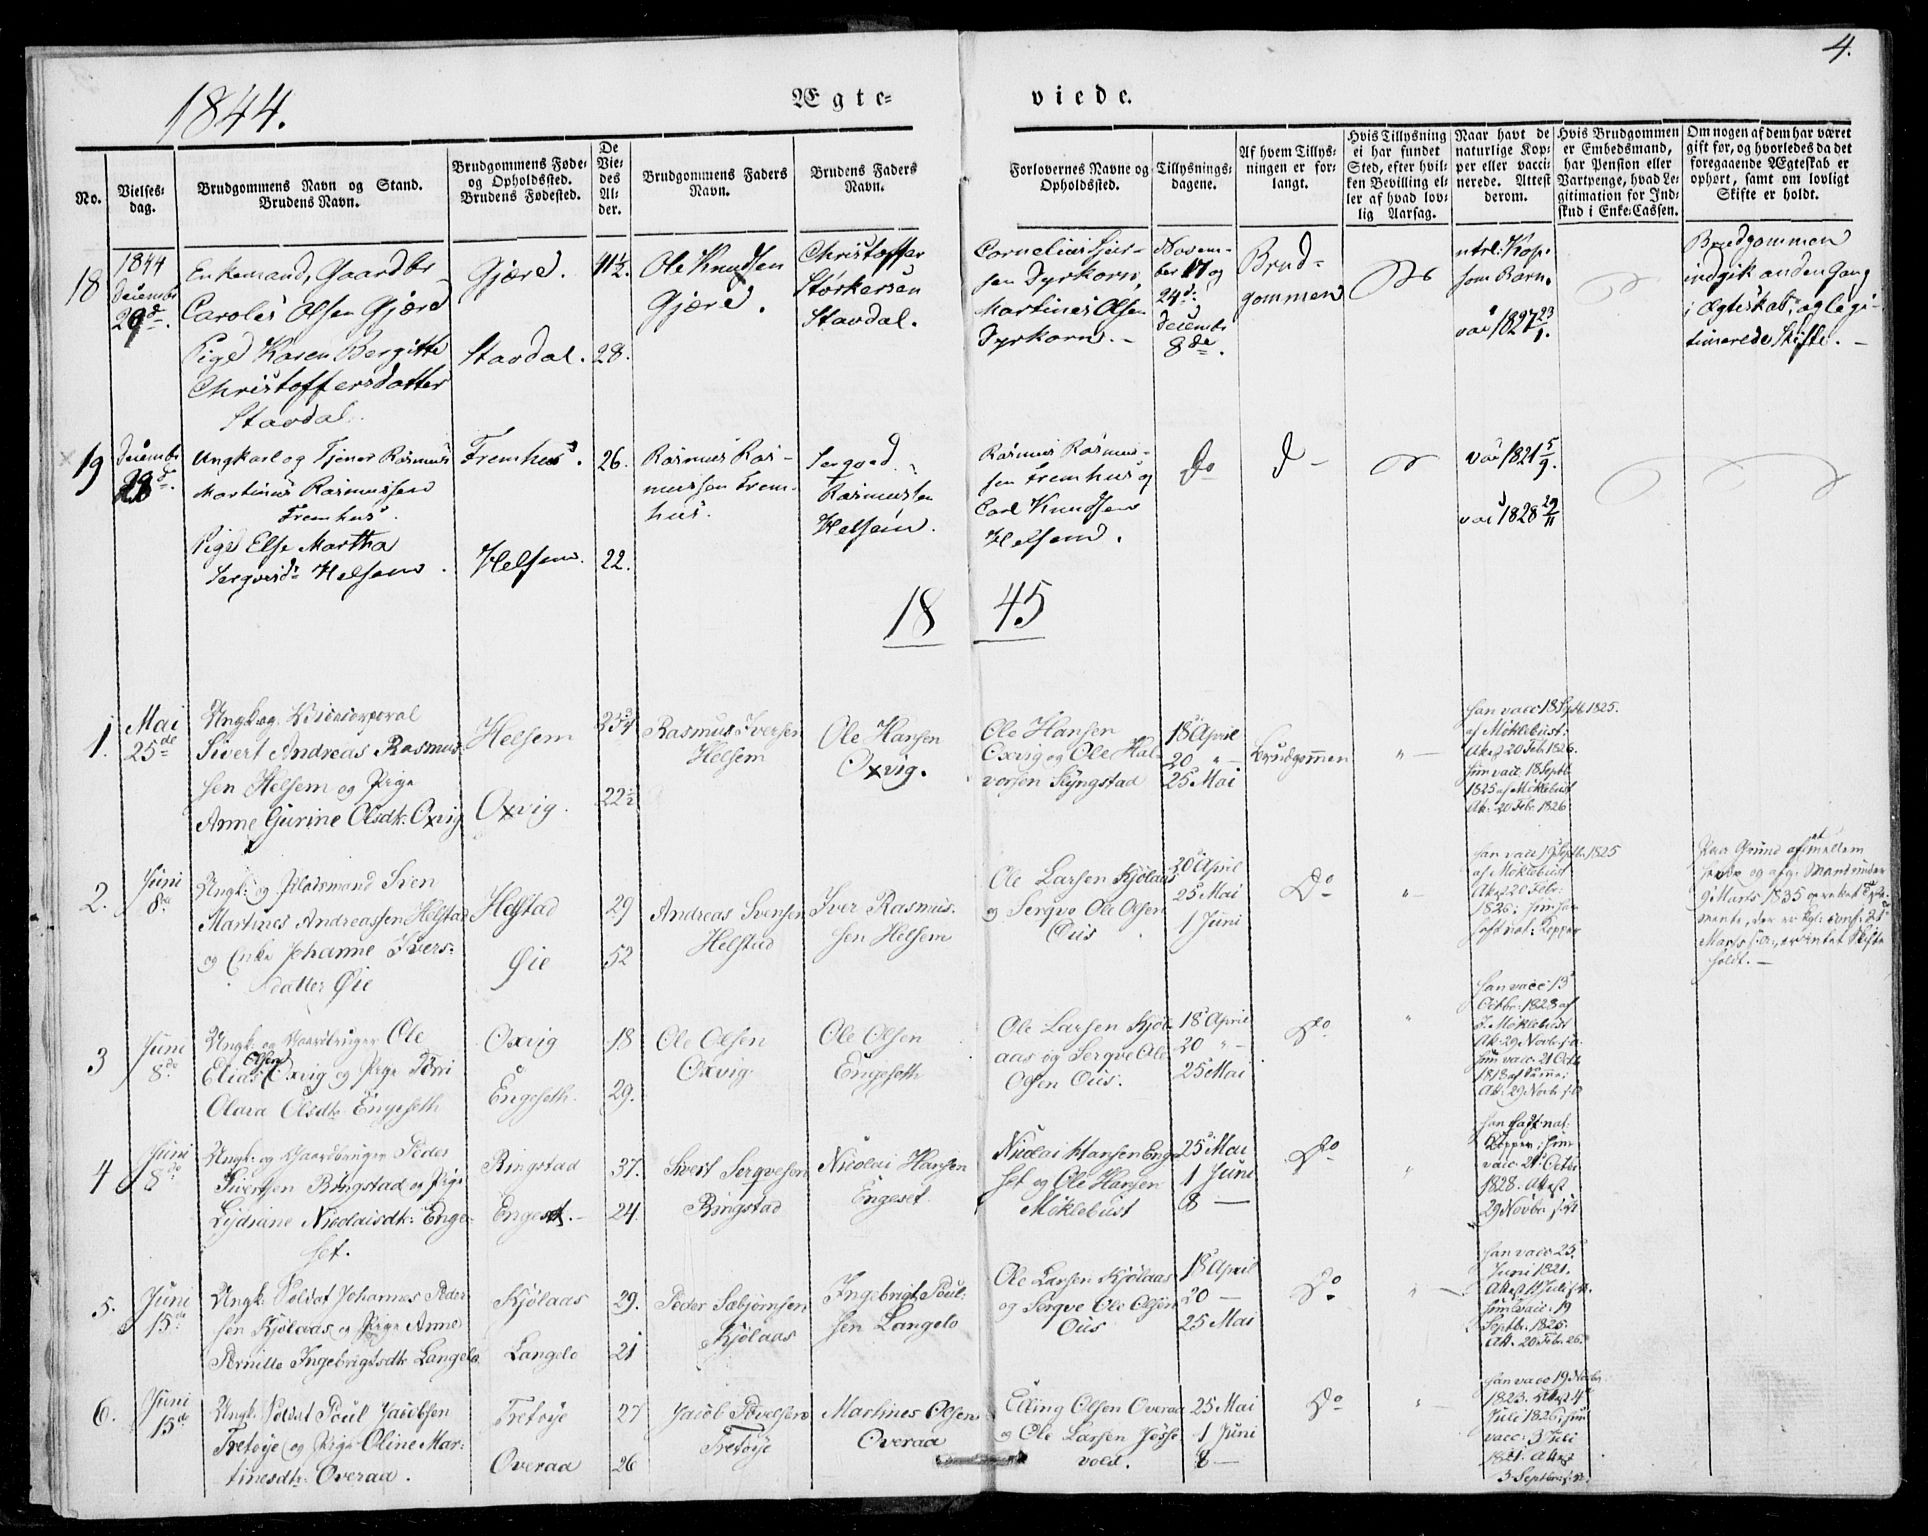 4.
1844.
Ægte=
viede.
No.
Vielses-
dag.
Brudgommens Navn og Stand.
Brudens Navn.
Brudgommens Føde-
og Opholdssted.
Brudens Fødested.
De
Vie-
des
Al-
der.
Brudgommens Faders
Navn.
Brudens Faders
Navn.
Forlovernes Navne og
Opholdssted.
Tillysnings-
dagene.
Af hvem Tillys-
ningen er for-
langt.
Hvis Tillysning
ei har fundet
Sted, efter hvil-
ken Bevilling el-
ler af hvad lov-
lig Aarsag.
Naar havt de
naturlige Kop-
per eller vacci-
nerede. Attest
derom.
Hvis Brudgommen
er Embedsmand,
har Pension eller
Vartpenge, hvad Le-
gitimation for Ind-
skud i Enke-Cassen.
Om nogen af dem har været
gift før, og hvorledes da det
foregaaende Ægteskab er
ophørt, samt om lovligt
Skifte er holdt.
18
1844
Decembr
29d.
Enkemand, Gaardbr
Carolus Olsen Gjære
Pige Karen Bergitte
Christoffersdatter
Stavdal.
Gjære.
Stavdal.
41½.
28.
Ole Knudsen
Gjære.
Christoffer
Størkersen
Stavdal.
Cornelius Sjur-
sen Dyrkorn,
Martinus Olsen
Dyrkorn.
Novem-
ber 17 og
24d:
Decembr
8de.
Brud-
gommen
ntrl. Kop.
som Barn.
vac 1827 23/9.
Brudgommen
indgik anden Gang
i Ægteskab, og legi-
timerede Skifte. -
19
Decembr
28d.
Ungkarl og Tjener Rasmus
Martinus Rasmussen
Fremhus.
Pige Else Martha
Sergvesd: Helsem.
Fremhus.
Helsem.
26.
22.
Rasmus Ras-
mussen Frem-
hus.
Rasmussen
Helsem.
Rasmus Rasmus-
sen Fremhus og
Carl Knudsen
Helsem.
Do
vac 1821 5/9.
vac 1828 29/11
18 45
1.
Mai
25de
Ungk. og Vicecorporal
Sivert Andreas Rasmus-
sen Helsem og Pige
Anne Gurine Olsdtr: Oxvig
Helsem
Oxvig.
25¾
22½
Rasmus Iversen
Helsem
Ole Hansen
Oxvig.
Ole Hansen
Oxvig og Ole Hal-
vorsen Klyngstad
18 April
20 " -
25 Mai
Brudgommen
"
Han vacc 18 Septb. 1825.
af Möklebust:
Attest 20 Feb. 1826.
Hun vacc. 18 Septb.
1825 af Möklebust
At: 20 Febr 1826
2.
Juni
8de
Ungk: og Pladsmand Sven
Martines Andreassen Helstad
og Enke Johanne Ivers-
datter Øie
Helstad
Øie
29
52
Andreas Svensen
Helstad
Iver Rasmus-
sen Helsem
Ole Larsen Kjölaas
og Sergve Ole Olsen
Ous
20 April
25 Mai
1 Juni
Do
"
Han vacc 19 Septb. 1825
af Möklebust
Attest 20 Febr:
1826; Hun har
haft nat: Kopper
Paa Grund af et mellem
hende og afg: Mand under
9 Marts 1835 oprettet Testa-
mente, der er Kgl: conf:
Marts s.A., er intet Skifte
holdt. -
3
Juni
8de
Ungk: og Gaardbruger Ole
Elias Olsen Oxvig og Pige
Olava Olsdtr Engeseth
Oxvig
Engeseth.
18
29.
Ole Olsen
Oxvig
Ole Olsen
Engeseth
Ole Larsen Kjöl-
aas og Sergve Ole
Olsen Ous.
18 April
20 " -
25 Mai
Do
"
Han vacc: 13
Octbr: 1828 af
J. Möklebust
At: 29 Novb. s.A.
Hun vacc. 21 Octb
1818 af samme;
Att: 29 Novb s.A.
4
Juni
8de
Ungk: og Gaardbruger Peder
Sivertsen Ringstad og Pige
Lydiane Nicolaisdtr: Enge-
set.
Ringstad
Engeset.
37.
24.
Sivert Sergvesen
Ringstad
Nicolai Hansen
Engeset
Nicolai Hansen Enge-
set og Ole Hansen
Möklebust
25 Mai
1 Juni
8 -
Do
"
Han haft nat:
Kopper; Hun
vacc. 21 Octbr
1828. Attest
29 Novbr s.A.
5.
Juni
15de
Ungk: Soldat Johannes Peder-
sen Kjölaas og Pige Anne
Pernille Ingebrigtsdtr Langelo
Kjölaas
Langelo
29.
21
Peder Sæbjörnsen
Kjölaas
Ingebrigt Poul-
sen Langelo
Ole Larsen Kjölaas
og Sergve Ole Olsen
Ous
18 April
20 -
25 Mai
Do
"
Han vacc 25
Juni 1821.
Attest 11 Juli s.A.
Hun vacc. 19
Septb. 1825.
Att. 20 Feb. 26.
6.
Juni
15de
Ungk. Soldat Poul Jacobsen
Tretöye og Pige Oline Mar-
tinesdtr: Overaa.
Tretöye
Overaa
27
26
Jacob Povelsen
Tretöye
Martines Olsen
Overaa
Elling Olsen Overaa
og Ole Larsen Jösse-
vold.
25 Mai
1 Juni
8 -
Do
"
Han vacc 19 Novbr.
1823. Attest 4
Juli 1826; Hun
vacc. 3 Juli
1821. Attest
3 Septbr s.A.